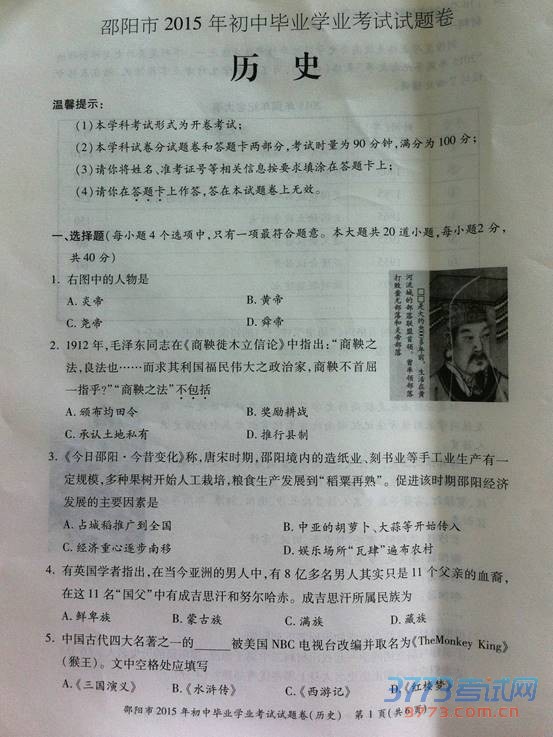 邵阳市2015年初中毕业学业考试试题卷
历 史
温馨提示:
(1)本学科考试形式为开卷考试;
(2)本学科试卷分试题卷和答题卡两部分,考试时量为90分钟,满分为100分;
(3)请你将姓名、准考证号等相关信息按要求填涂在答题卡上;
(4)请你在答题卡上作答,答在本试题卷上无效。
一、选择题(每小题4个选项中,只有一项最符合题意。本大题共20道小题,每小题2分,
共40分)
1. 右图中的人物是
A. 炎帝 B. 黄帝
C. 尧帝 D. 舜帝
□□是大约4000多年前,生活在黄
河流域的部落联盟首领。曾率领部落
打败蚩尤部落和炎帝部落
2. 1912年,毛泽东同志在《商鞅徙木立信论》中指出:“商鞅之
法,良法也……而求其利国福民伟大之政治家,商鞅不首屈
一指乎?”“商鞅之法”不包括
A. 颁布均田令 B. 奖励耕战
C. 承认土地私有 D. 推行县制
3. 《今日邵阳·今昔变化》称,唐宋时期,邵阳境内的造纸业、刻书业等手工业生产有一
定规模,多种果树开始人工栽培,粮食生产发展到“稻粟再熟”。促进该时期邵阳经济
发展的主要因素是
A. 占城稻推广到全国 B. 中亚的胡萝卜、大蒜等开始传入
C. 经济重心逐步南移 D. 娱乐场所“瓦肆”遍布农村
4. 有英国学者指出,在当今亚洲的男人中,有8亿多名男人其实只是11个父亲的血裔,
在这11名“国父”中有成吉思汗和努尔哈赤。成吉思汗所属民族为
A. 鲜卑族 B. 蒙古族 C. 满族 D. 藏族
5. 中国古代四大名著之一的______被美国NBC电视台改编并取名为《TheMonkey King》
(猴王)。文中空格处应填写
A.《三国演义》 B.《水浒传》 C.《西游记》 D.《红楼梦》
邵阳市2015年初中毕业学业考试试题卷(历史) 第1页(共6页)
3773考试网
3773.com.cn